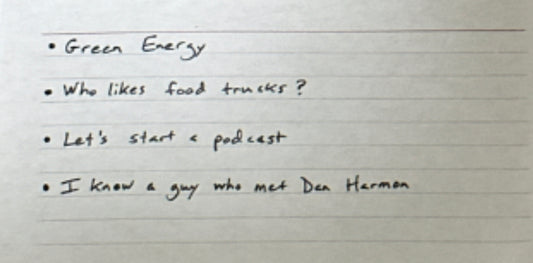 • Green Energy
• Who likes food trucks?
• Let's start a podcast
• I know a guy who met Dan Harmon